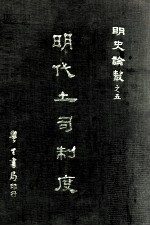 明史論叢之五
明代土司制度
學生書局印行